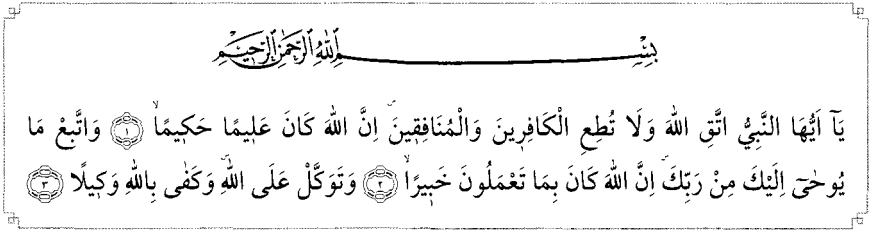 بِسْمِ اللّٰهِ الرَّحْمٰنِ الرَّحٖيمِ
يَٓا اَيُّهَا النَّبِيُّ اتَّقِ اللّٰهَ وَلَا تُطِعِ الْكَافِرٖينَ وَالْمُنَافِقٖينَۜ اِنَّ اللّٰهَ كَانَ عَلٖيمًا حَكٖيمًاۙ ﴿١﴾ وَاتَّبِعْ مَا
يُوحٰٓى اِلَيْكَ مِنْ رَبِّكَۜ اِنَّ اللّٰهَ كَانَ بِمَا تَعْمَلُونَ خَبٖيرًاۙ ﴿٢﴾ وَتَوَكَّلْ عَلَى اللّٰهِۜ وَكَفٰى بِاللّٰهِ وَكٖيلًا ﴿٣﴾